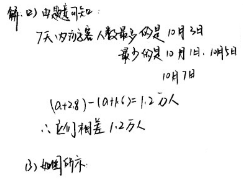 解:(2)由题意可知:
7天内游客人数最多的是10月3日
最少的是10月1日、10月5日
10月7日
(a+2.8)-(a+1.6)=1.2万人
∴它们相差1.2万人
(3)如图所示